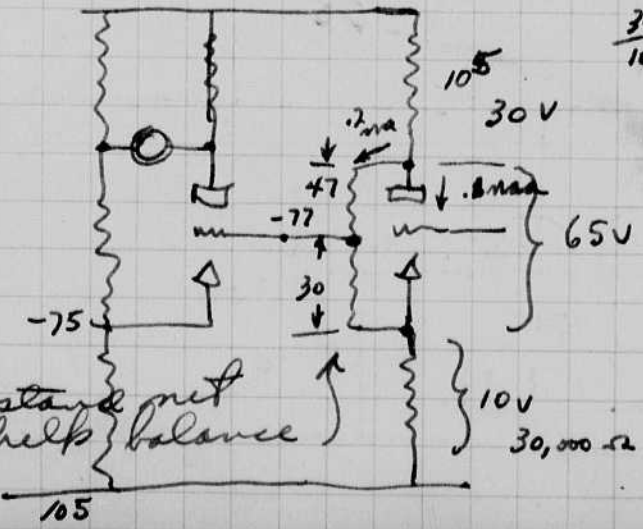 10⁵
30 V
.2 ma
47
.1 ma
-77
65 V
30
-75
net
help balance
10 V
30,000 Ω
105